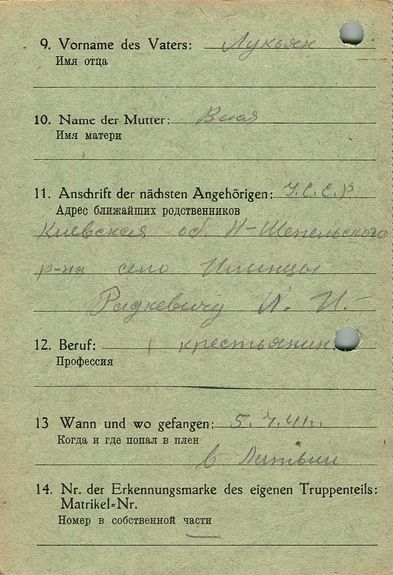 9. Vorname des Vaters: Лукьян
Имя отца
10. Name der Mutter:
Имя матери
11. Anschrift der nächsten Angehörigen: У.С.С.Р.
Адрес ближайших родственников
Киевская об. Н-Шепельского
р-на село Илинцы
Радкевичу Л. И.
12. Beruf: крестьянин
Профессия
13 Wann und wo gefangen: 5.7.41г.
Когда и где попал в плен
в Латвии
14. Nr. der Erkennungsmarke des eigenen Truppenteils:
Matrikel=Nr.
Номер в собственной части
—